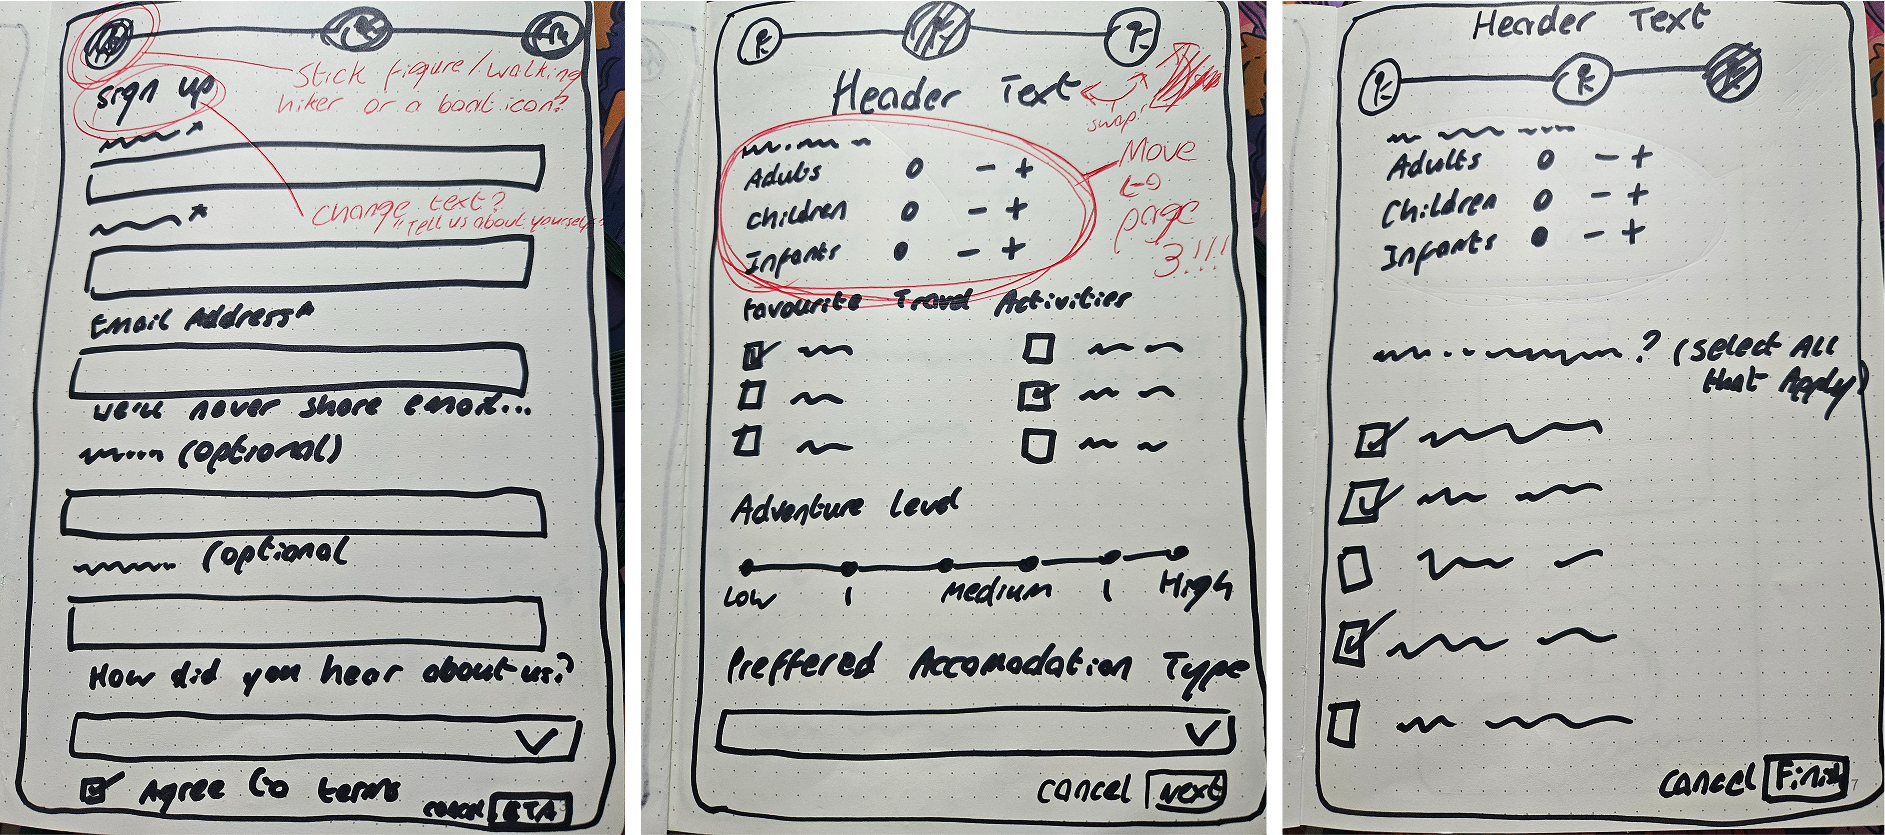 Stick figure/walking
hiker or a boat icon?
Sign up
*
*
Change text?
"Tell us about yourself"
Email Address*
We'll never share email...
(optional)
(optional
How did you hear about us?
Agree to terms
cancel
Header Text
swap!
Move
to
page
3!!!
Adults 0 - +
Children 0 - +
Infants 0 - +
Favourite Travel Activities
Adventure Level
Low | Medium | High
Preffered Accomodation Type
cancel Next
Header Text
Adults 0 - +
Children 0 - +
Infants 0 - +
? (Select All
that Apply)
cancel Finish
7